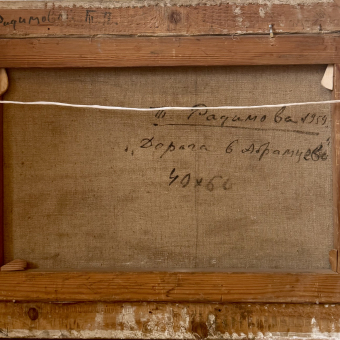 Радимова Т. П.
Т Радимова 1959
„Дорога в Абрамцево"
40×60